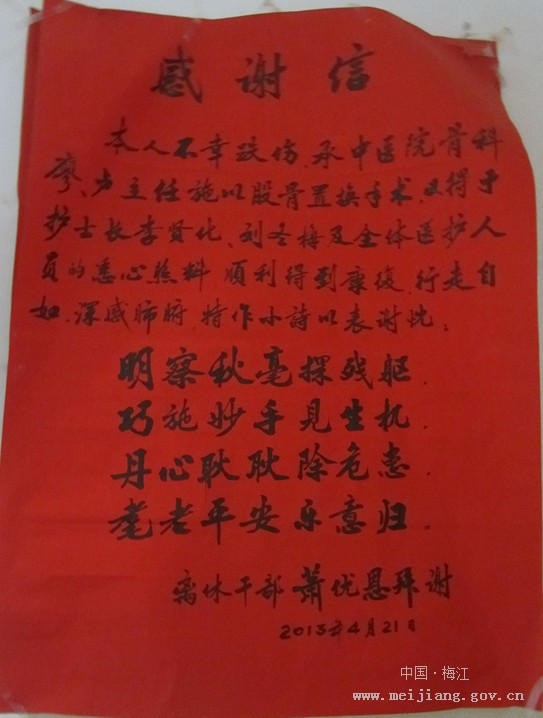 感谢信
本人不幸跌伤，承中医院骨科
廖、卢主任施以股骨置换手术，又得于
护士长李贤化、刘冬梅及全体医护人
员的悉心照料，順利得到康復，行走自
如，深感肺腑，特作小詩以表谢忱：
明察秋毫探残躯，
巧施妙手見生机，
丹心耿耿除危患，
耄老平安乐意归。
离休干部 萧优恩拜谢
2013年4月21日
中国·梅江
www.meijiang.gov.cn